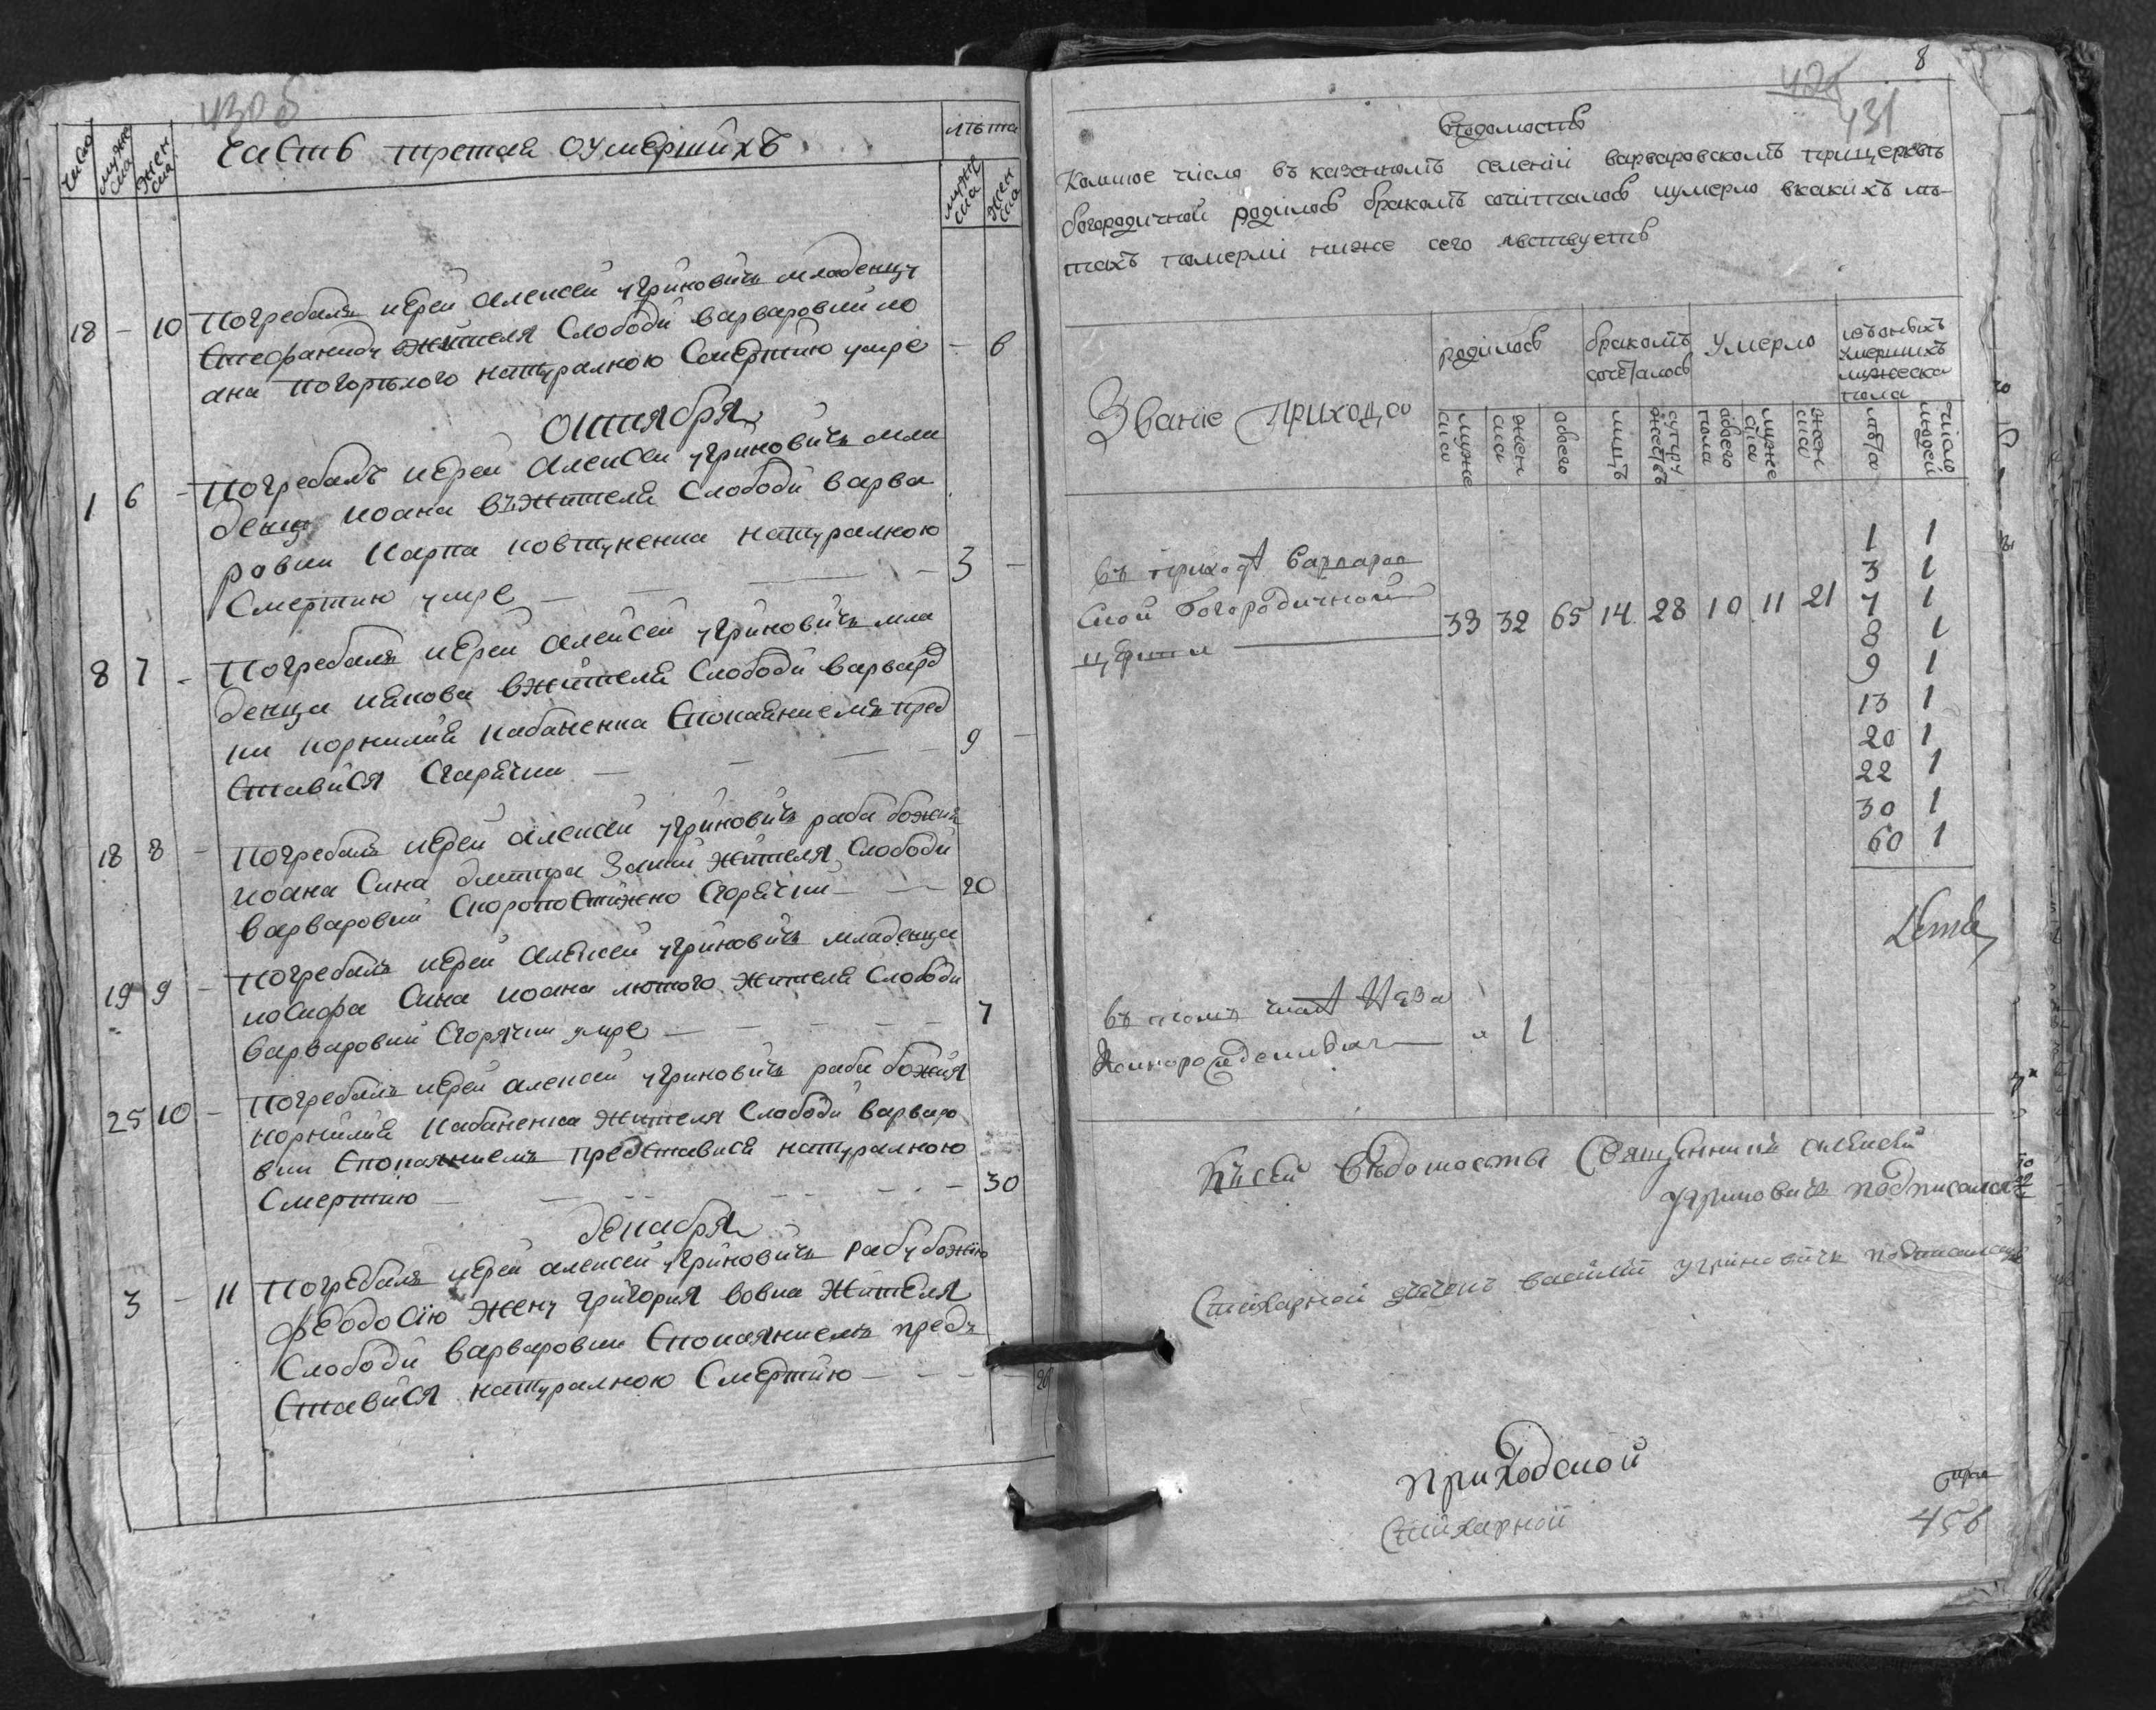 430 б
Часть третая оумершихъ
число
мужеска
женска
лѣта
мужеска
женска
18 – 10 Погребалъ иерей алексей угриновичъ младенцу
Стефаниду жителя Слободи варваровки ио
ана погорѣлого натуралною Смертию умре – 6
октября
1 6 – Погребалъ иерей алексей угриновичъ мла
денца иоана въжителя Слободи варва
ровки Карпа ковтуненка натуралною
Смертию умре – 3 –
8 7 – Погребалъ иерей алексей угриновичъ мла
денца иякова вжителя Слободи варваро
ки корнилия кабаненка Споканиемъ пред
Ставися Сгарячки – 9 –
18 8 – Погребалъ иерей алексей угриновичъ раба божия
иоана Сина дмитра Заики жителя Слободи
варваровки Скоропостижно Сгорячки – 20
19 9 – Погребалъ иерей алексей угриновичъ младенца
иосифа Сина иоана лютого жителя Слободи
варваровки Сгорячки умре – 7
25 10 – Погребалъ иерей алексей угриновичъ раба божия
корнилия кабаненка жителя Слободи варваро
вки Спокаяниемъ представися натуралною
Смертию – 30
декабря
3 – 11 Погребалъ иерей алексей угриновичъ рабу божию
феодосию жену григория вовка жителя
Слободи варваровки Спокаяниемъ предъ
Ставися натуралною Смертию – 20
8
431
Вѣдомость
Коликое число въ казенномъ селении варваровскомъ прицерквѣ
богородичной родилось бракомъ сочиталось иумерло вкакихъ лѣ-
тахъ померли ниже сего явствуетъ
Звание Прихода
родилось
бракомъ сочеталось
Умерло
изъонихъ умершихъ мужеска пола
мужеска
женска
обоего
обоего пола
мужеска
женска
лѣта
число людей
въ приходѣ варваров
ской богородичной
церкви 33 32 65 14 28 10 11 21
1 1
3 1
7 1
8 1
9 1
13 1
20 1
22 1
30 1
60 1
въ томъ числѣ Неза
коннорожденныхъ " 1
Къ сей вѣдомости Священникъ алексей
угриновичъ подписался
Стихарной дячекъ василий угриновичъ подписался
приходской
Стихарной
456